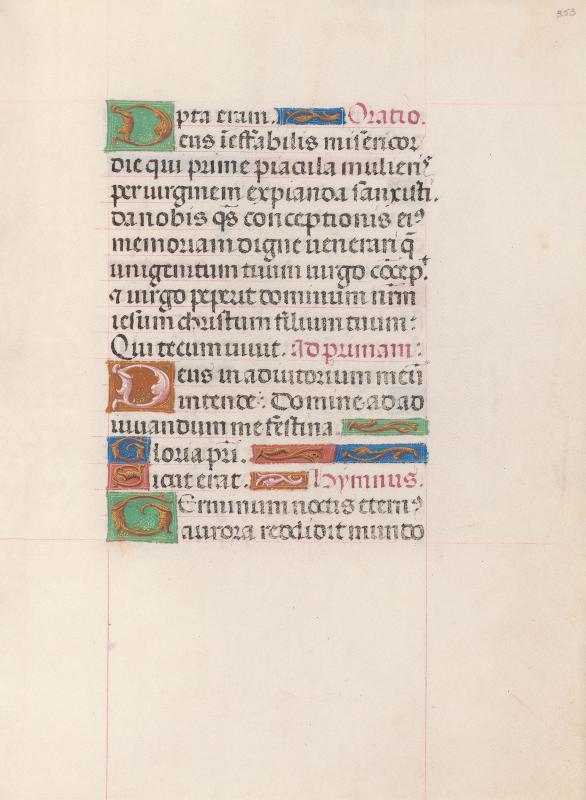 353
pta eram. Oratio.
Deus īeffabilis misericor
die qui prime piacula mulierꝭ
per virginem expianda sanxisti.
da nobis qs̄ conceptionis ei⁹
memoriam digne venerari q̄
unigenitum tuum virgo cōcep.ͭ
⁊ virgo peperit dominum nr̄m
iesum christum filium tuum:
Qui tecum vivit. Ad primam:
Deus in adiutorium meū
intende: Domine ad ad
iuvandum me festina.
Gloria pr̄i.
Sicut erat. Hymnus.
Germinum noctis etern⁹
aurora reddidit mundo